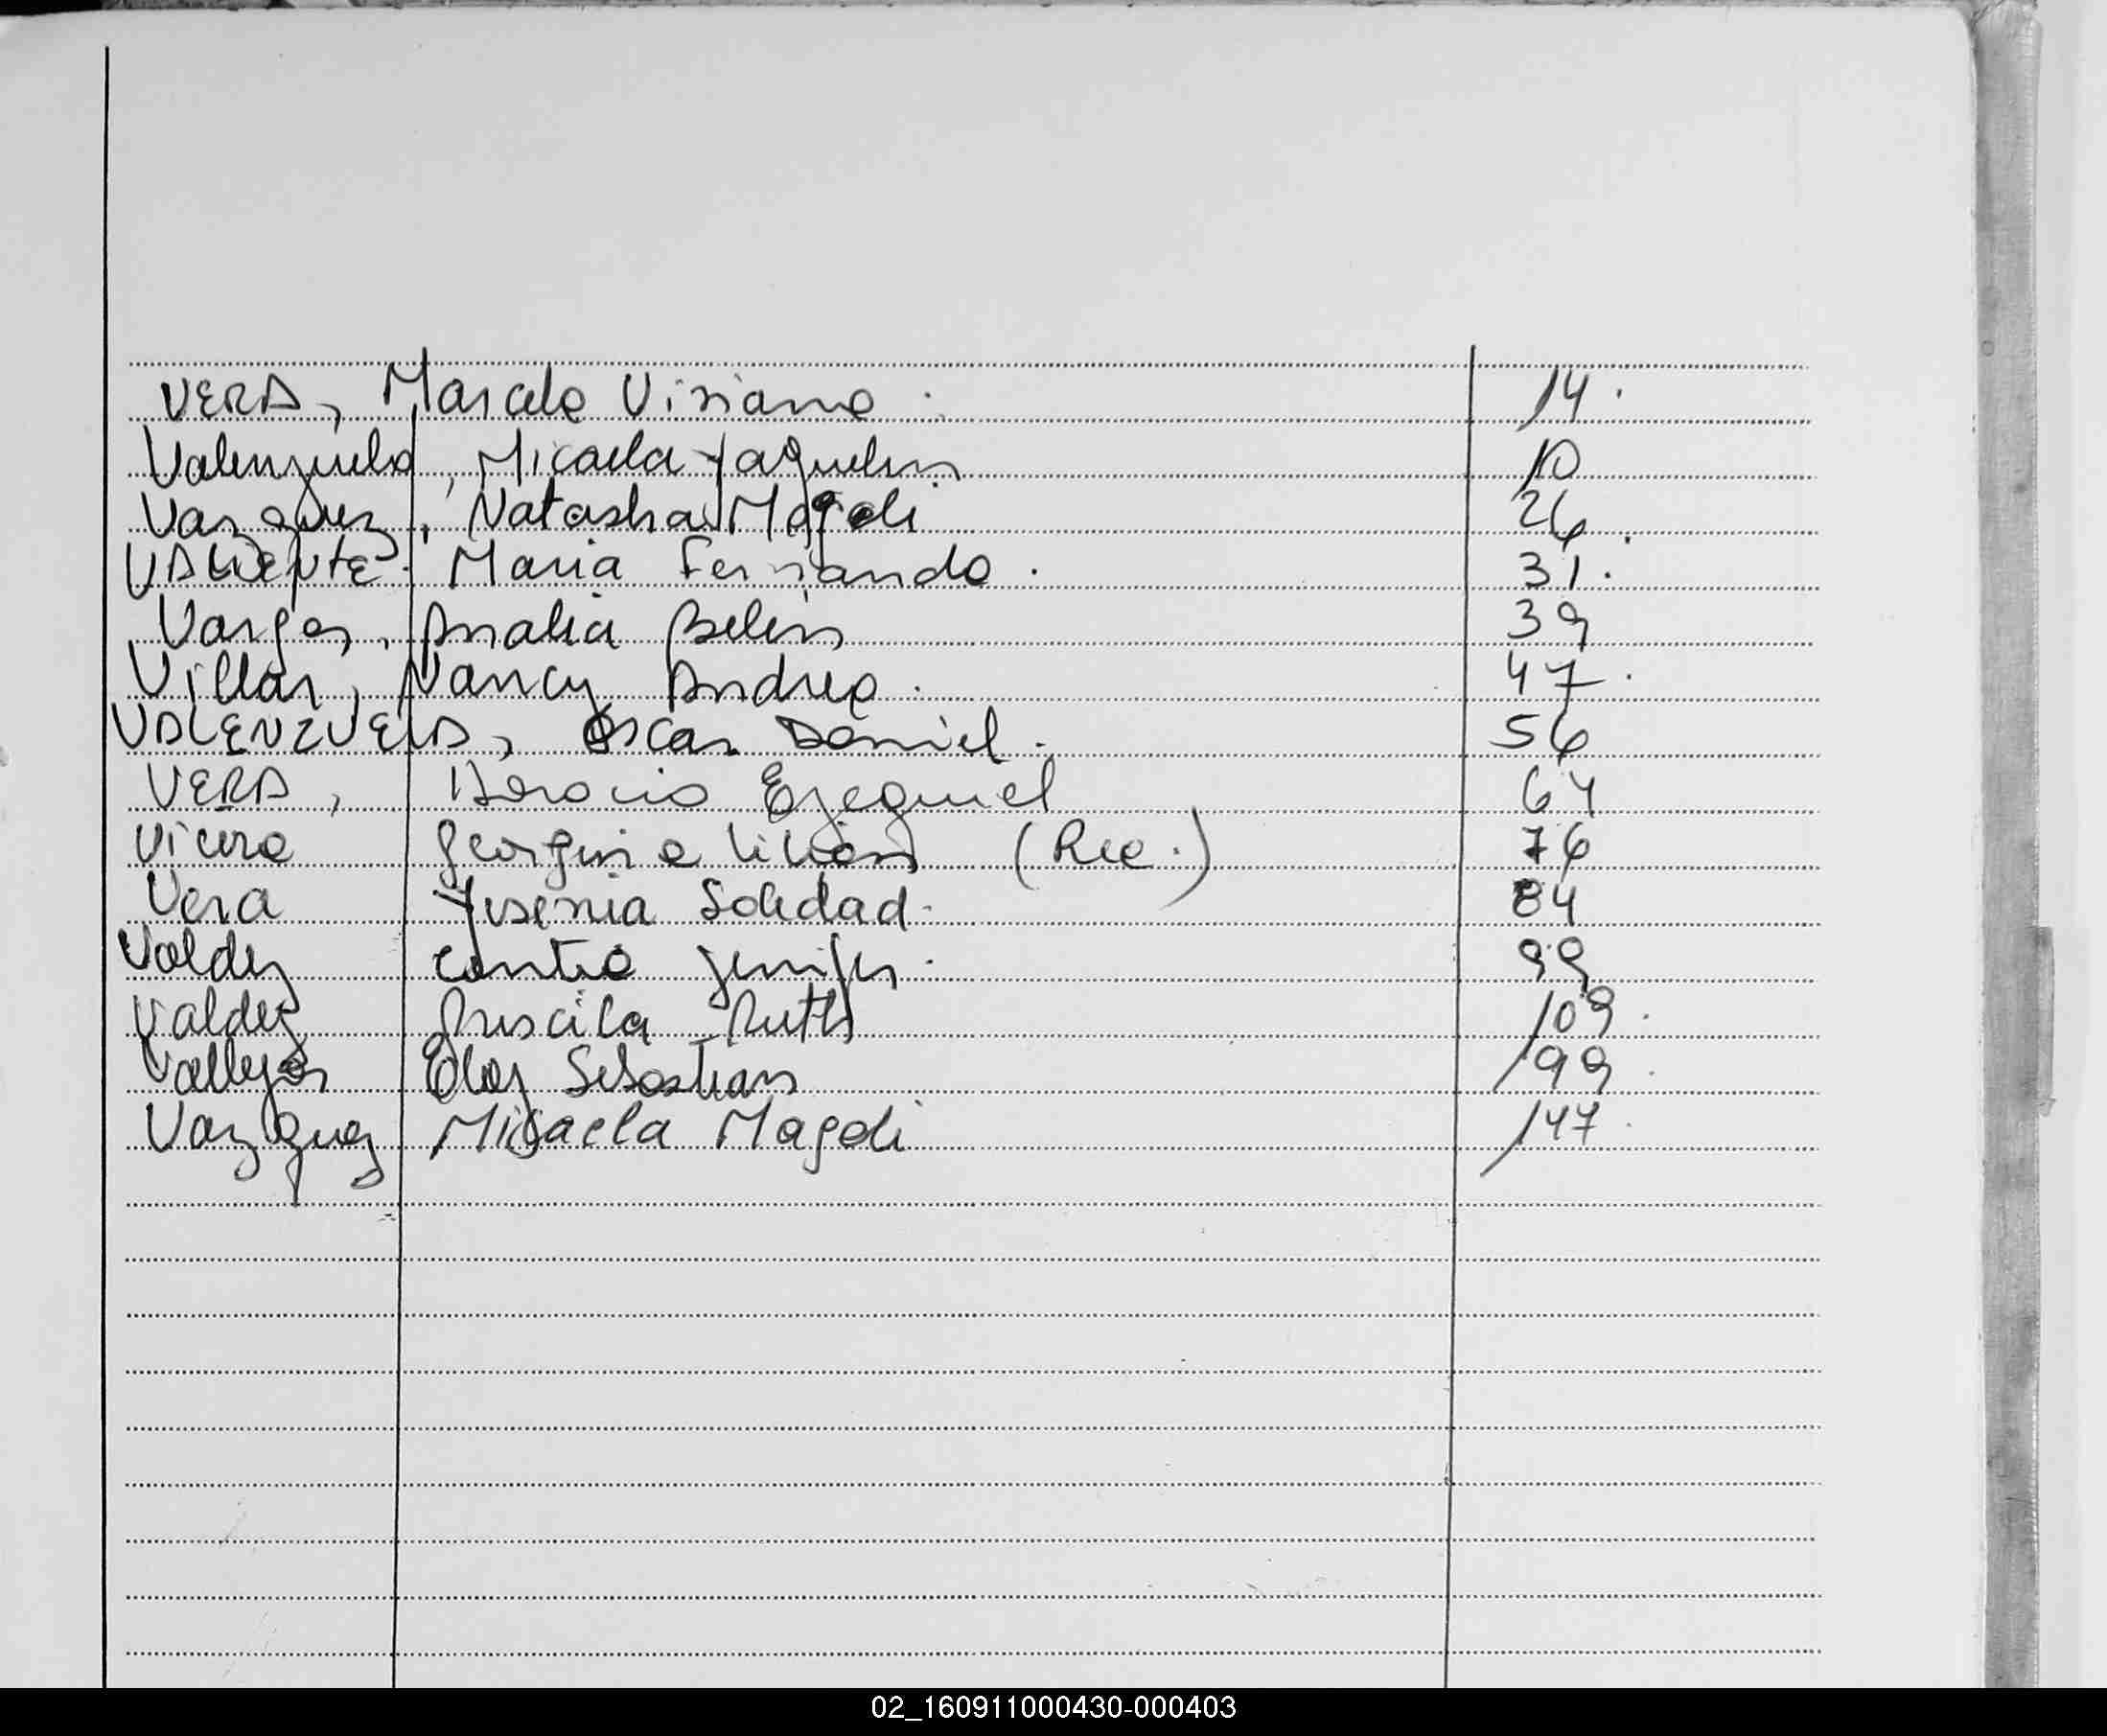 VERA, Marcela Viviana. 14.
Valenzuela, Micaela Yaquelin 10
Vazquez, Natasha Magali 26.
VALIENTE. Maria Fernanda. 31.
Vargas, Analia Belen 39
Villar, Nancy Andrea. 47.
VALENZUELA, Oscar Daniel. 56
VERA, Horacio Ezequiel 64
Georgina Lilian (Rec.) 76
Vera Yesenia Soledad. 84
Valdez Jenifer. 99
Valdez Priscila Ruth 109.
Vallejos Eloy Sebastian 199.
Vazquez Micaela Magali 147.
02_160911000430-000403